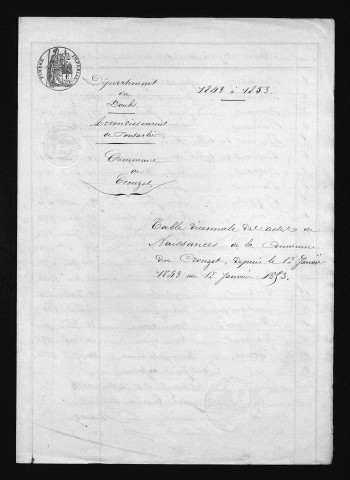 TIMBRE IMPÉRIAL
Département
du
Doubs.
1843 à 1853.
Arrondissement
de Pontarlier
Commune
du
Crouzet.
Table décennale des actes de
Naissances de la Commune
du Crouzet, depuis le 1er Janvier
1843 au 1er Janvier 1853.